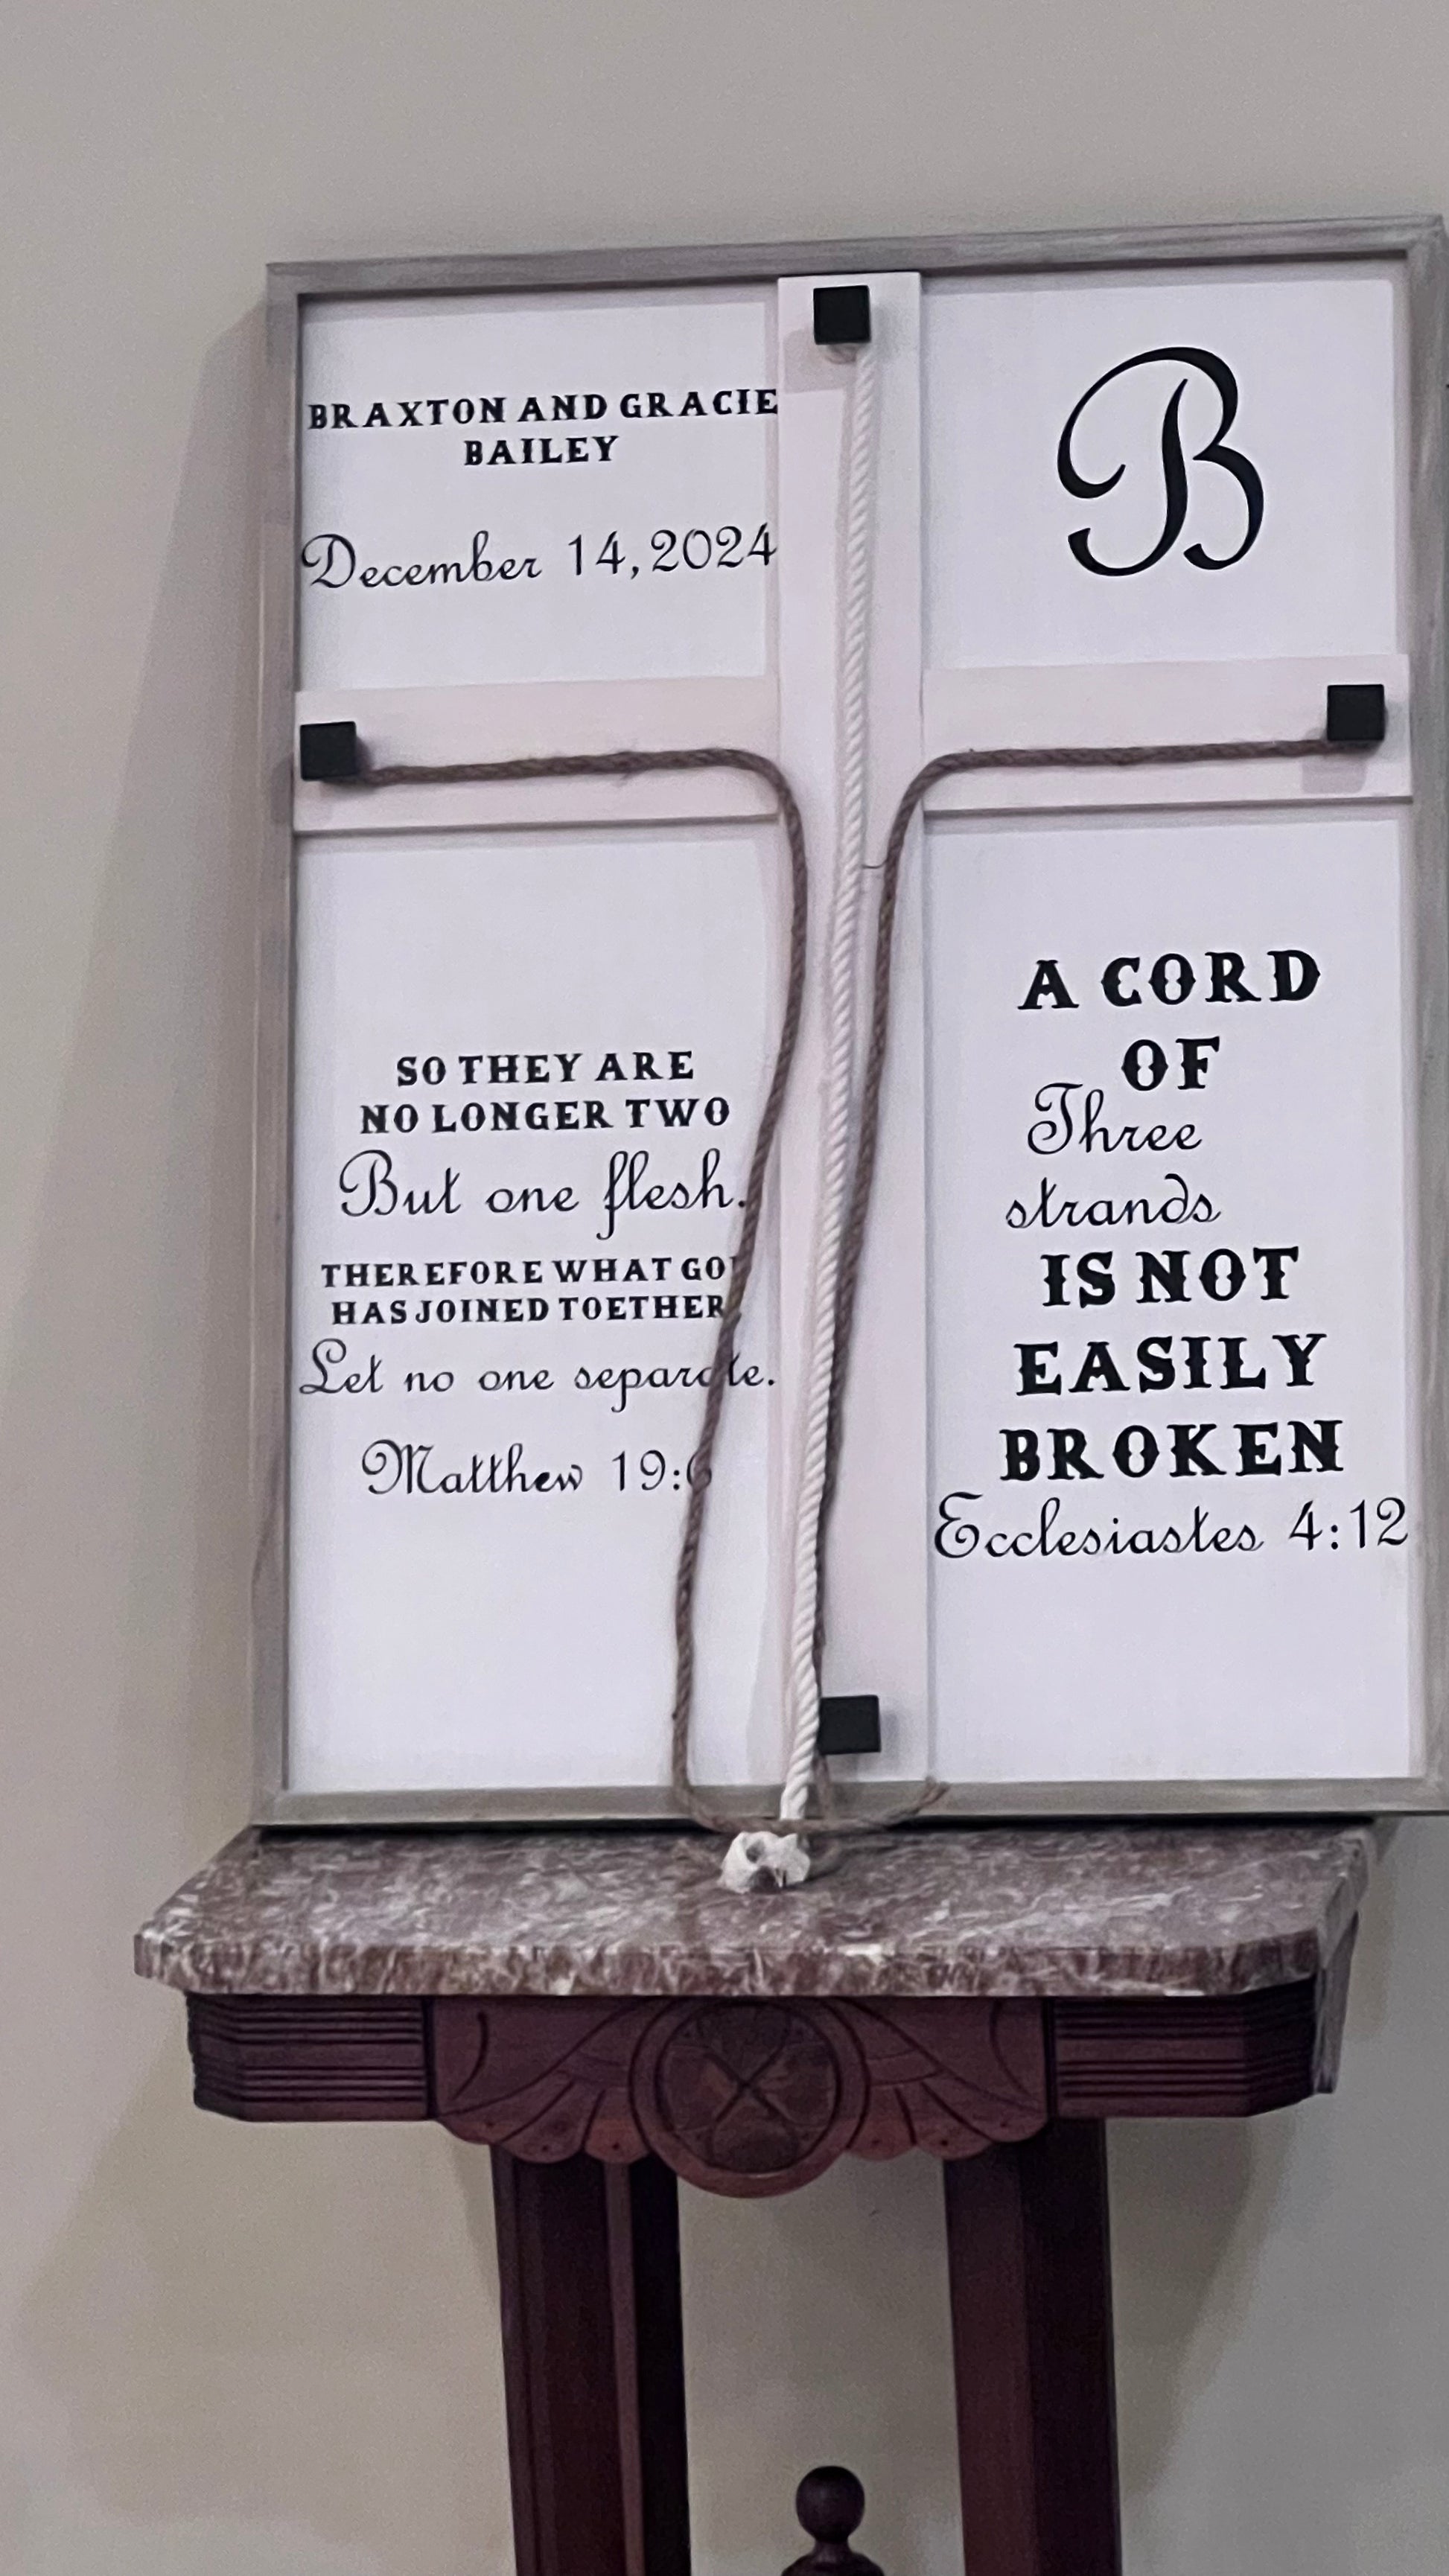 BRAXTON AND GRACIE
BAILEY
December 14, 2024
B
SO THEY ARE
NO LONGER TWO
But one flesh.
THEREFORE WHAT GO
HAS JOINED TOETHER
Let no one separate.
Matthew 19:6
A CORD
OF
Three
strands
IS NOT
EASILY
BROKEN
Ecclesiastes 4:12